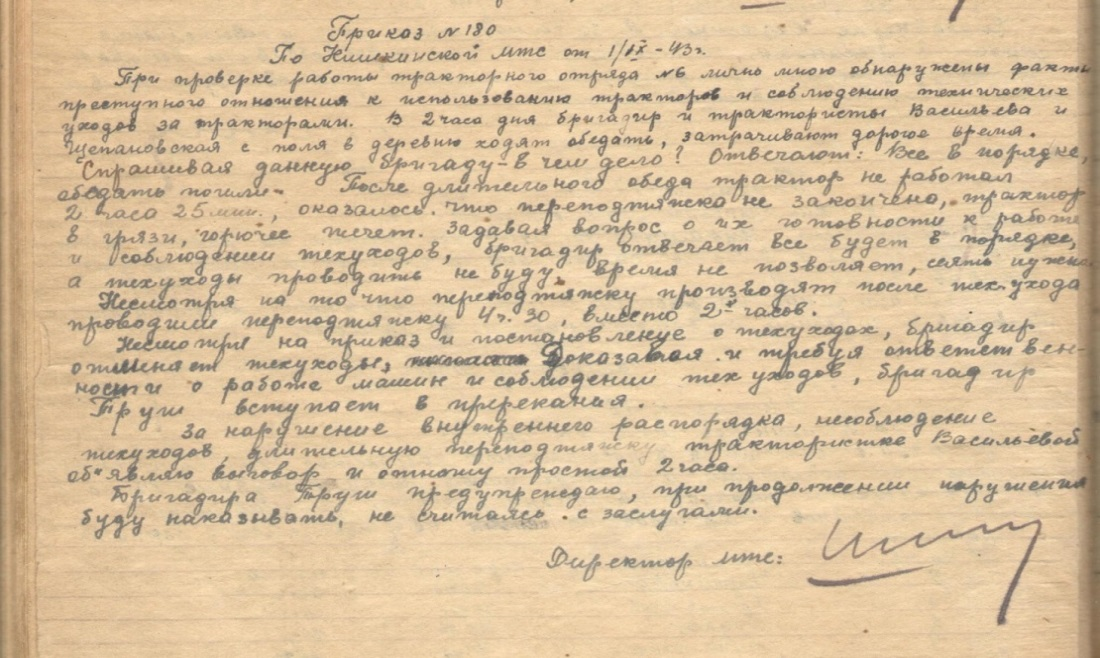 Приказ №180
По Кишкинской мтс от 1/IX-43г.
При проверке работы тракторного отряда №6 лично мною обнаружены факты
преступного отношения к использованию тракторов и соблюдению технических
уходов за тракторами. В 2 часа дня бригадир и трактористы Васильева и
Щепановская с поля в деревню ходят обедать, затрачивают дорогое время.
Спрашивая данную бригаду-в чем дело? Отвечают: Все в порядке,
обедать пошли- После длительного обеда трактор не работал
2 часа 25 мин., оказалось что переподтяжска не закончена, трактор
в грязи, горючее течет. Задавая вопрос о их готовности к работе
и соблюдении техуходов, бригадир отвечает все будет в порядке,
а техуходы проводить не буду время не позволяет, сеять нужно
Несмотря на то что переподтяжску производят после тех.ухода
проводили переподтяжску 4ч.30, вместо 2х часов.
Несмотря на приказ и постановление о техуходах, бригадир
отменяет техуходы, Доказывая и требуя ответствен-
ности о работе машин и соблюдении тех уходов, бригадир
Труш вступает в пререкания.
За нарушение внутреннего распорядка, несоблюдение
техуходов, длительную переподтяжску трактористке Васильевой
об"являю выговор и отношу простой 2 часа.
Бригадира Труш предупреждаю, при продолжении нарушения
буду наказывать, не считаясь с заслугами.
Директор мтс: